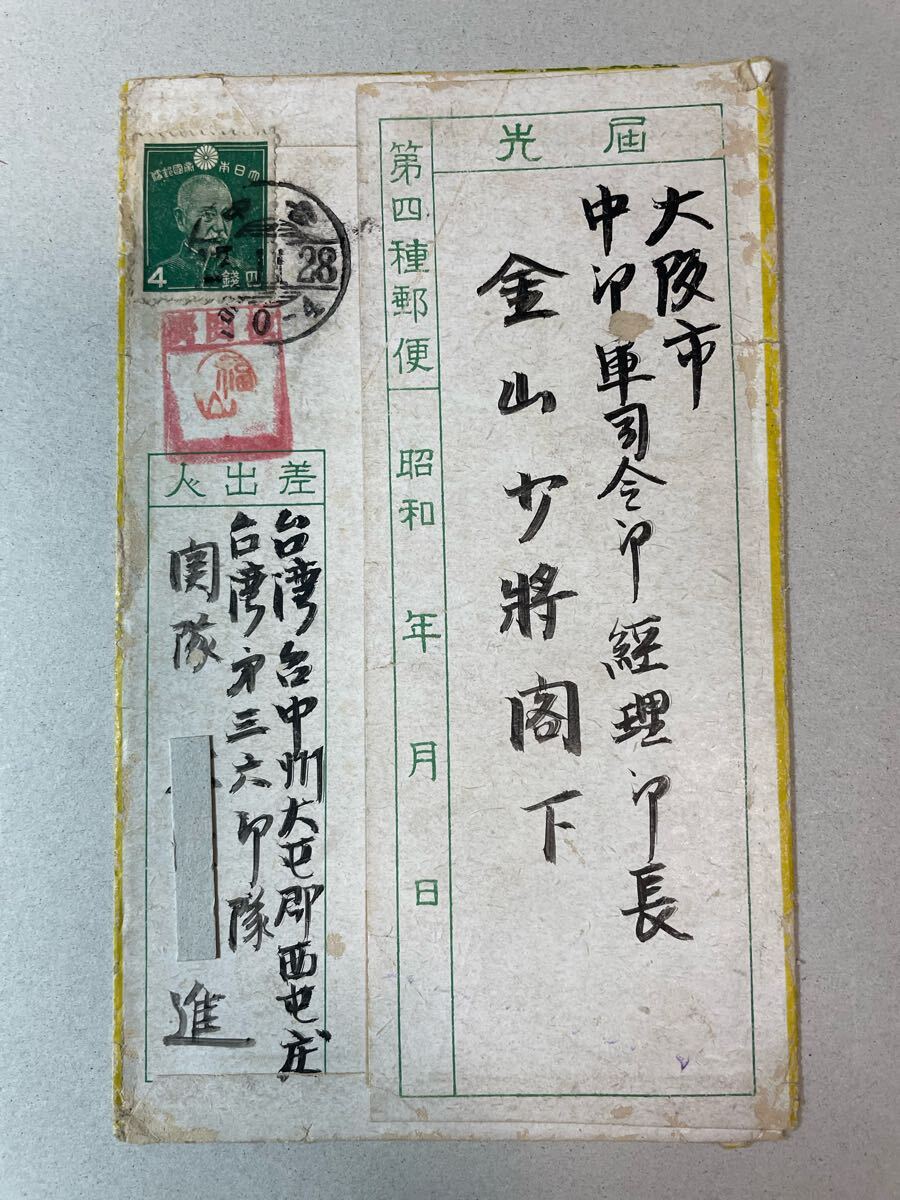 届先
大阪市
中卩軍司令卩經理卩長
金山少將閣下
第四種郵便 昭和 年 月 日
大日本帝國郵便
4 四錢
28
0-4
福山
差出人
台湾台中州大屯郡西屯庄
台湾第三六卩隊
関隊
進